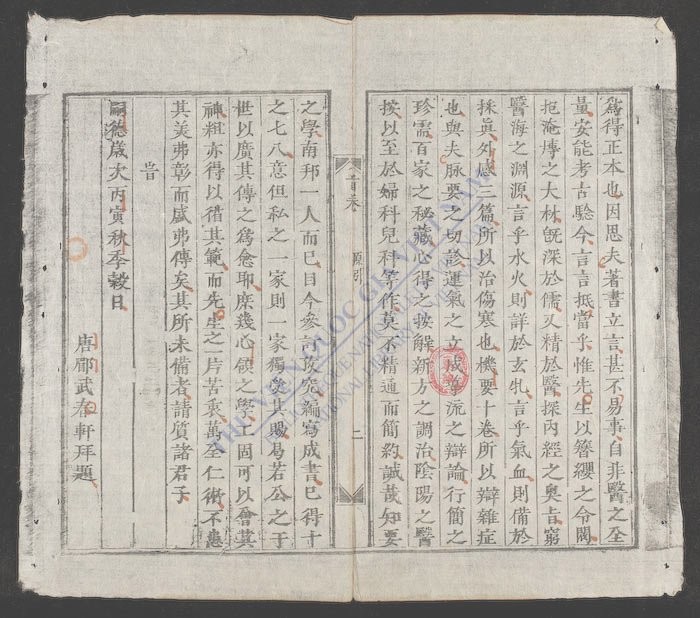 為得正本也因思夫著書立言甚不易事自非醫之全
量安能考古騐今言言抵當乎惟先生以簪纓之令閥
抱淹愽之大林旣深於儒又精於醫探內經之奧旨窮
醫海之淵源言乎水火則詳於玄牝言乎氣血則備於
採真外感三篇所以治傷寒也機要十卷所以辯雜症
也與夫脉要之切診運氣之立成導流之辯論行簡之
珍需百家之秘藏心得之按解新方之調治陰陽之醫
按以至於婦科兒科等作莫不精通而簡約誠哉知要
首卷 原引 二
之學南邦一人而已目今參討攷究編寫成書已得十
之七八意但私之一家則一家獨矣其賜易若公之于
世以廣其傳之為愈耶庶幾心領之學工固可以會其
神粗亦得以循其範而先生之一片苦衷萬全仁術不患
其美弗彰而盛弗傳矣其所未備者請質諸君子
旹
嗣德歲次丙寅秋季穀日
唐郿武春軒拜題
THƯ VIỆN QUỐC GIA VIỆT NAM
NATIONAL LIBRARY OF VIETNAM